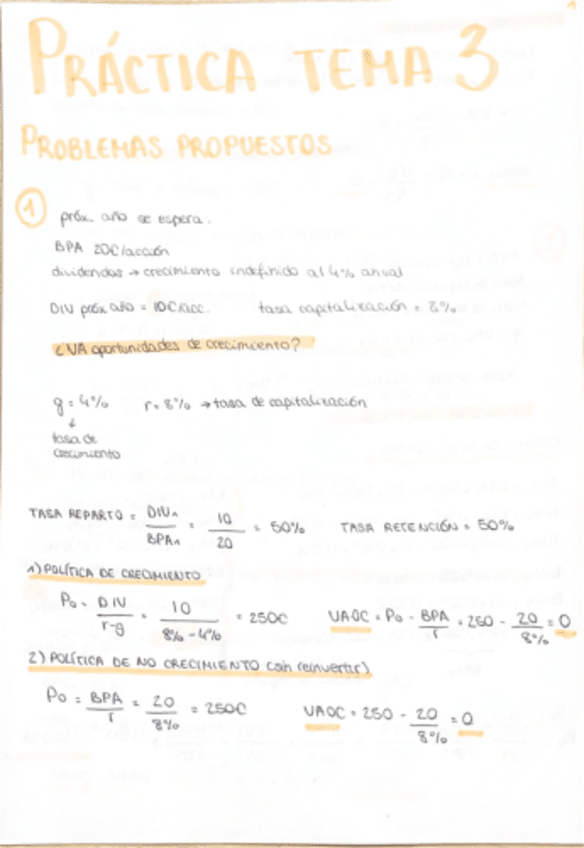 PRÁCTICA TEMA 3
PROBLEMAS PROPUESTOS
1
próx. año se espera.
BPA 20€/acción
dividendos → crecimiento indefinido al 4% anual
DIV próx año = 10€/acc. tasa capitalización = 8%
¿VA oportunidades de crecimiento?
g = 4% r = 8% → tasa de capitalización
↓
tasa de
crecimiento
TASA REPARTO = DIV₁ / BPA₁ = 10 / 20 = 50% TASA RETENCIÓN = 50%
1) POLÍTICA DE CRECIMIENTO
P₀ = DIV / r-g = 10 / 8% - 4% = 250€ VAOC = P₀ - BPA / r = 250 - 20 / 8% = 0
2) POLÍTICA DE NO CRECIMIENTO (sin reinvertir)
P₀ = BPA / r = 20 / 8% = 250€ VAOC = 250 - 20 / 8% = 0